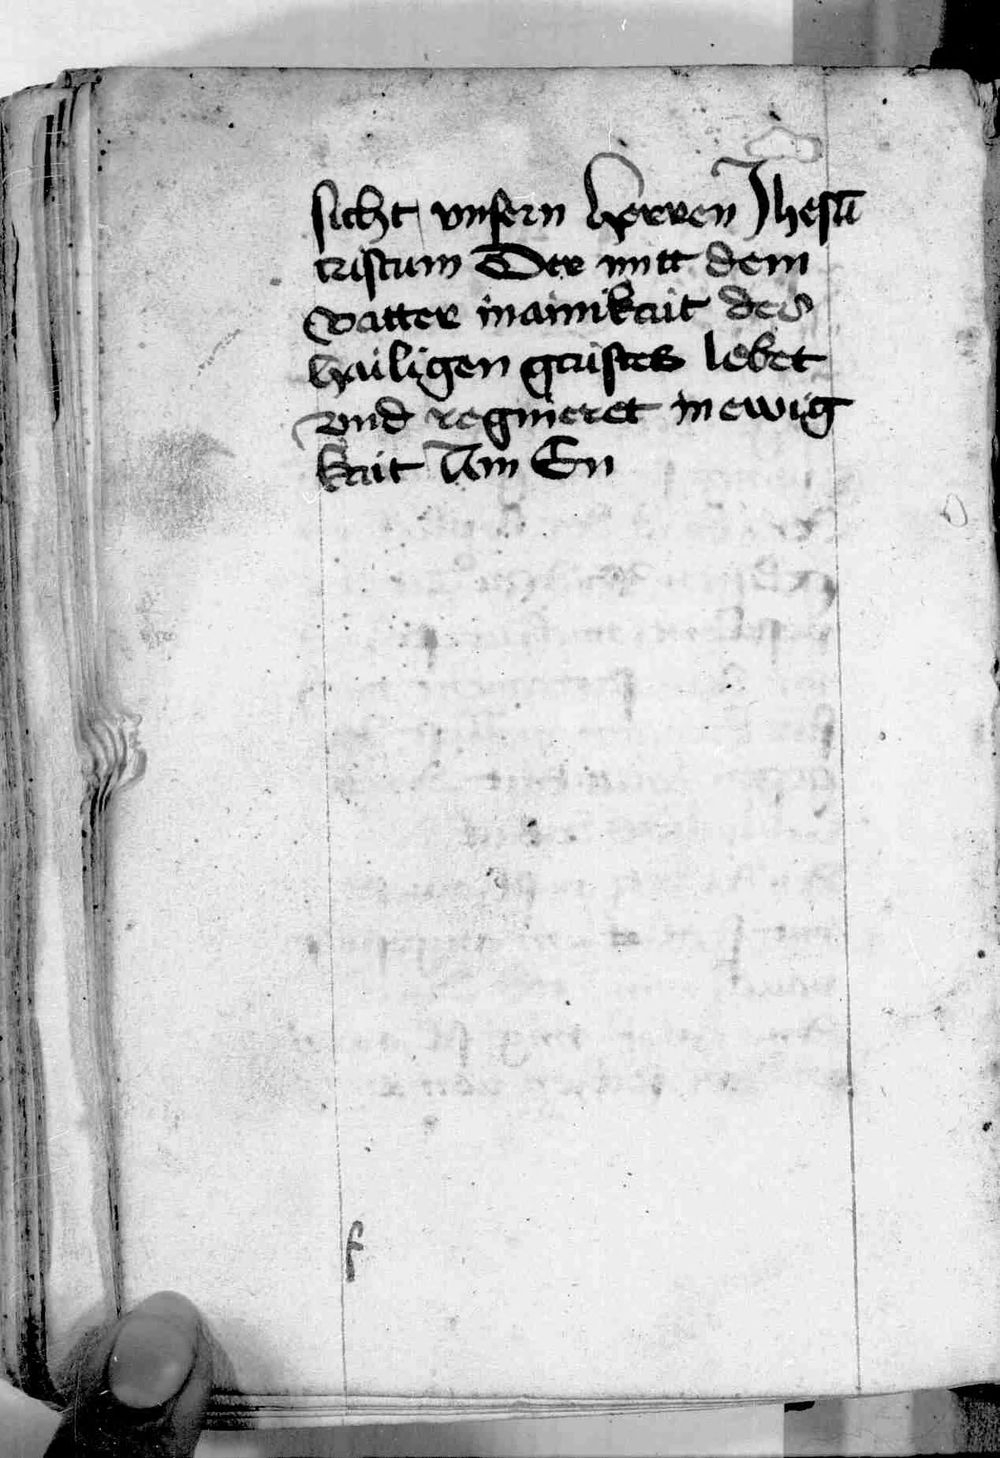 sicht vnsern herren Jhesū
cristum Der mitt dem
vatter in ainikait des
hailigen gaistes lebet
vnd regnieret in ewig
kait Am En
f